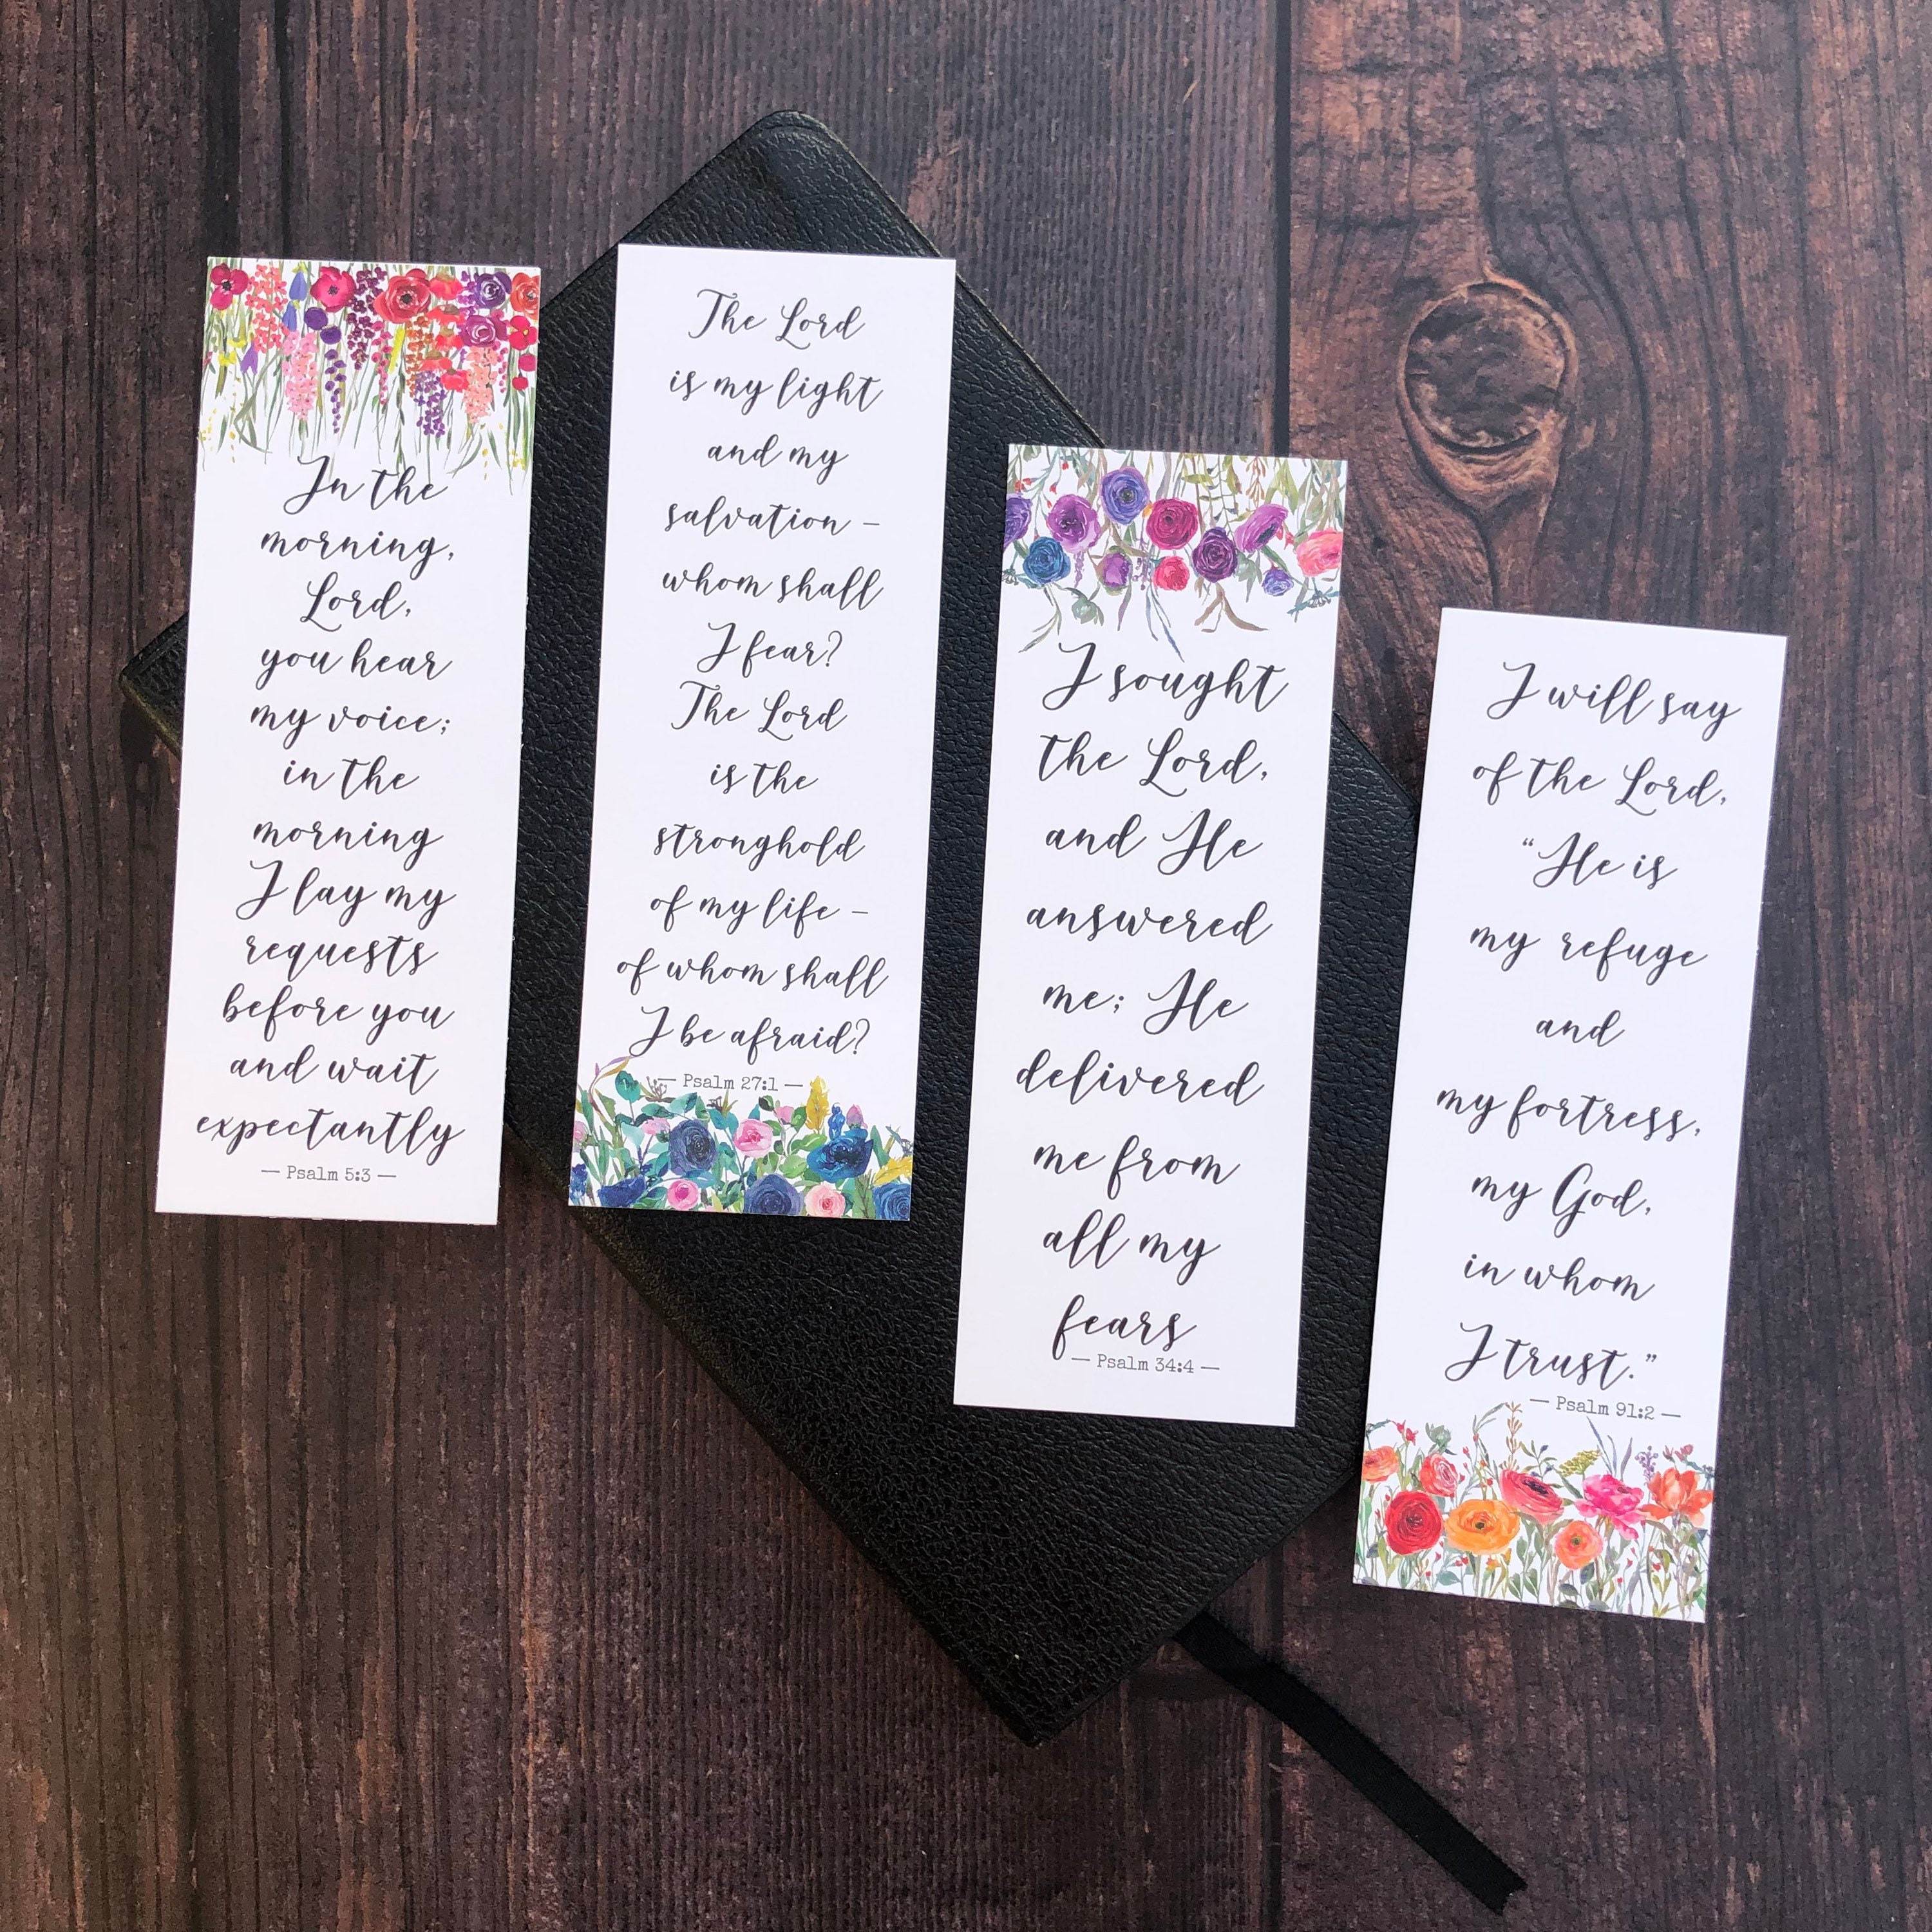 In the
morning,
Lord,
you hear
my voice;
in the
morning
I lay my
requests
before you
and wait
expectantly
— Psalm 5:3 —
The Lord
is my light
and my
salvation –
whom shall
I fear?
The Lord
is the
stronghold
of my life –
of whom shall
I be afraid?
— Psalm 27:1 —
I sought
the Lord,
and He
answered
me; He
delivered
me from
all my
fears
— Psalm 34:4 —
I will say
of the Lord,
“He is
my refuge
and
my fortress,
my God,
in whom
I trust.”
— Psalm 91:2 —